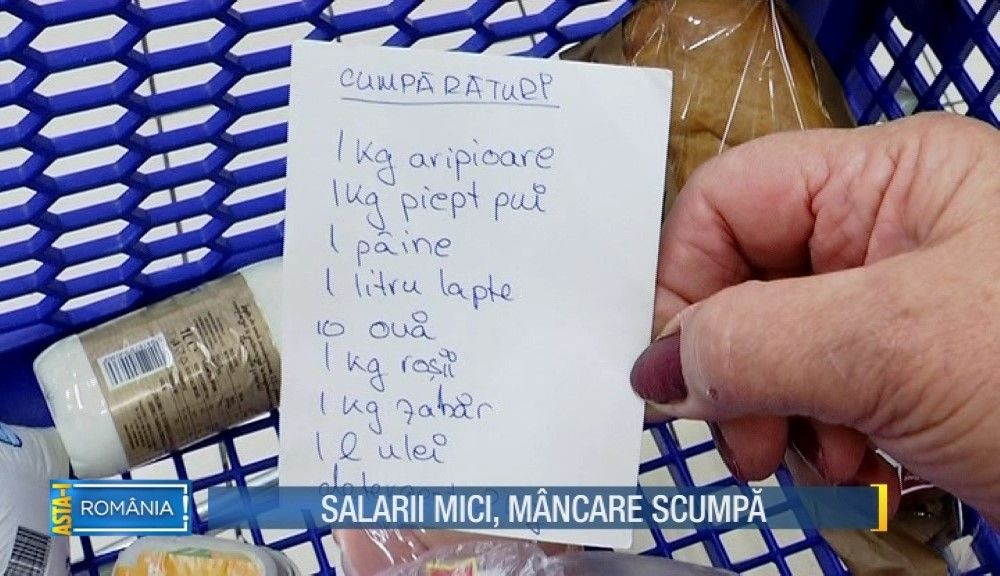 CUMPĂRĂTURI
1 kg aripioare
1 kg piept pui
1 pâine
1 litru lapte
10 ouă
1 kg roșii
1 kg zahăr
1 l ulei
ASTA-I
ROMÂNIA!
SALARII MICI, MÂNCARE SCUMPĂ